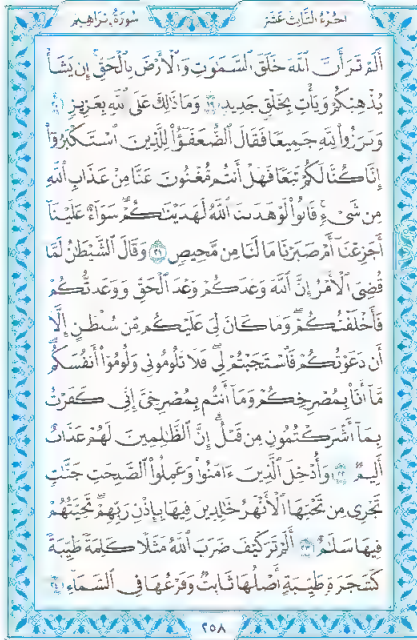 الجزء الثالث عشر
سورة إبراهيم
أَلَمْ تَرَ أَنَّ ٱللَّهَ خَلَقَ ٱلسَّمَٰوَٰتِ وَٱلْأَرْضَ بِٱلْحَقِّ إِن يَشَأْ
يُذْهِبْكُمْ وَيَأْتِ بِخَلْقٍ جَدِيدٍ ١٩ وَمَا ذَٰلِكَ عَلَى ٱللَّهِ بِعَزِيزٍ ٢٠
وَبَرَزُوا۟ لِلَّهِ جَمِيعًا فَقَالَ ٱلضُّعَفَٰٓؤُا۟ لِلَّذِينَ ٱسْتَكْبَرُوٓا۟
إِنَّا كُنَّا لَكُمْ تَبَعًا فَهَلْ أَنتُم مُّغْنُونَ عَنَّا مِنْ عَذَابِ ٱللَّهِ
مِن شَىْءٍ قَالُوا۟ لَوْ هَدَىٰنَا ٱللَّهُ لَهَدَيْنَٰكُمْ سَوَآءٌ عَلَيْنَآ
أَجَزِعْنَآ أَمْ صَبَرْنَا مَا لَنَا مِن مَّحِيصٍ ٢١ وَقَالَ ٱلشَّيْطَٰنُ لَمَّا
قُضِىَ ٱلْأَمْرُ إِنَّ ٱللَّهَ وَعَدَكُمْ وَعْدَ ٱلْحَقِّ وَوَعَدتُّكُمْ
فَأَخْلَفْتُكُمْ وَمَا كَانَ لِىَ عَلَيْكُم مِّن سُلْطَٰنٍ إِلَّآ
أَن دَعَوْتُكُمْ فَٱسْتَجَبْتُمْ لِى فَلَا تَلُومُونِى وَلُومُوٓا۟ أَنفُسَكُم
مَّآ أَنَا۠ بِمُصْرِخِكُمْ وَمَآ أَنتُم بِمُصْرِخِىَّ إِنِّى كَفَرْتُ
بِمَآ أَشْرَكْتُمُونِ مِن قَبْلُ إِنَّ ٱلظَّٰلِمِينَ لَهُمْ عَذَابٌ
أَلِيمٌ ٢٢ وَأُدْخِلَ ٱلَّذِينَ ءَامَنُوا۟ وَعَمِلُوا۟ ٱلصَّٰلِحَٰتِ جَنَّٰتٍ
تَجْرِى مِن تَحْتِهَا ٱلْأَنْهَٰرُ خَٰلِدِينَ فِيهَا بِإِذْنِ رَبِّهِمْ تَحِيَّتُهُمْ
فِيهَا سَلَٰمٌ ٢٣ أَلَمْ تَرَ كَيْفَ ضَرَبَ ٱللَّهُ مَثَلًا كَلِمَةً طَيِّبَةً
كَشَجَرَةٍ طَيِّبَةٍ أَصْلُهَا ثَابِتٌ وَفَرْعُهَا فِى ٱلسَّمَآءِ ٢٤
٢٥٨